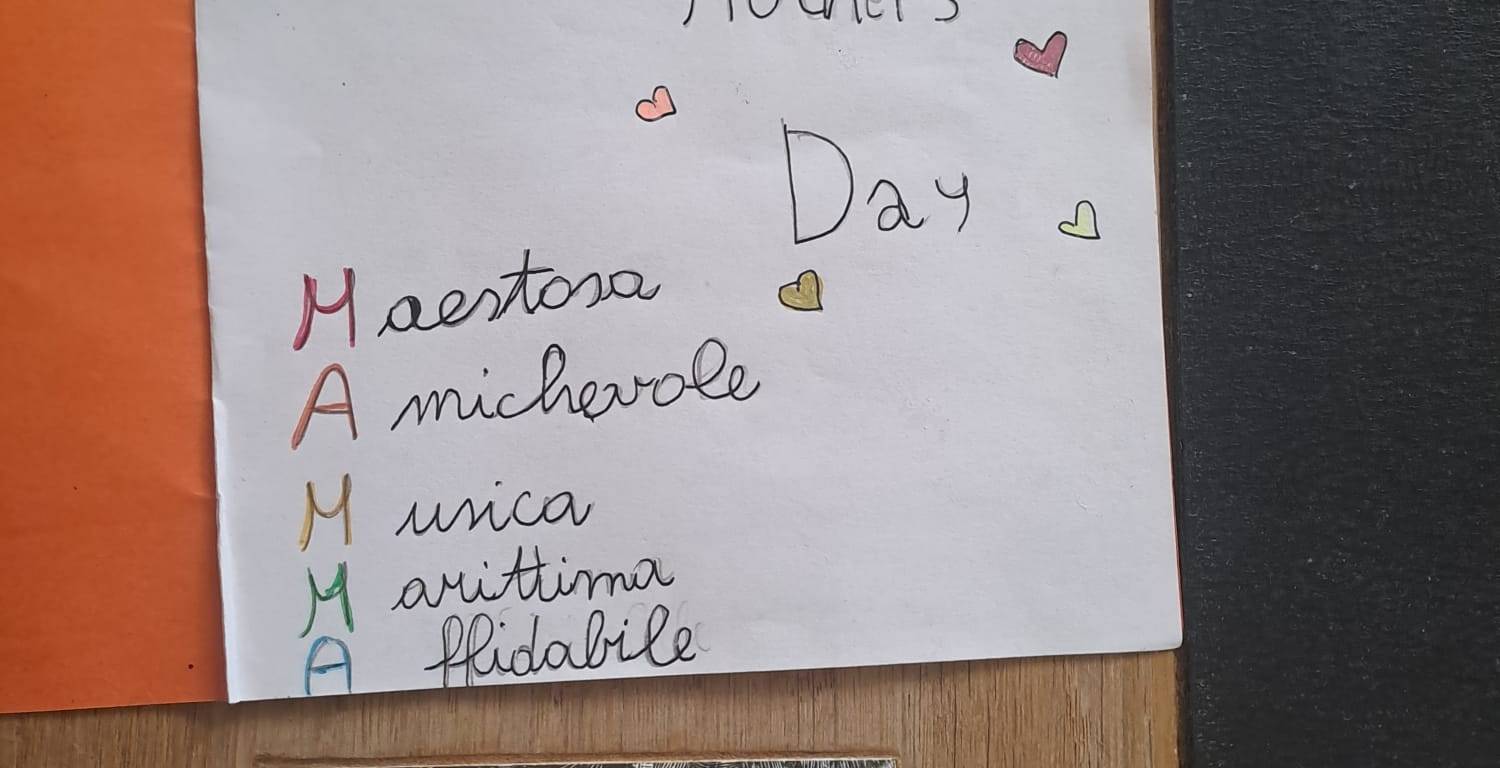 Mother's
Day
Maestosa
Amichevole
Musica
Marittima
Affidabile